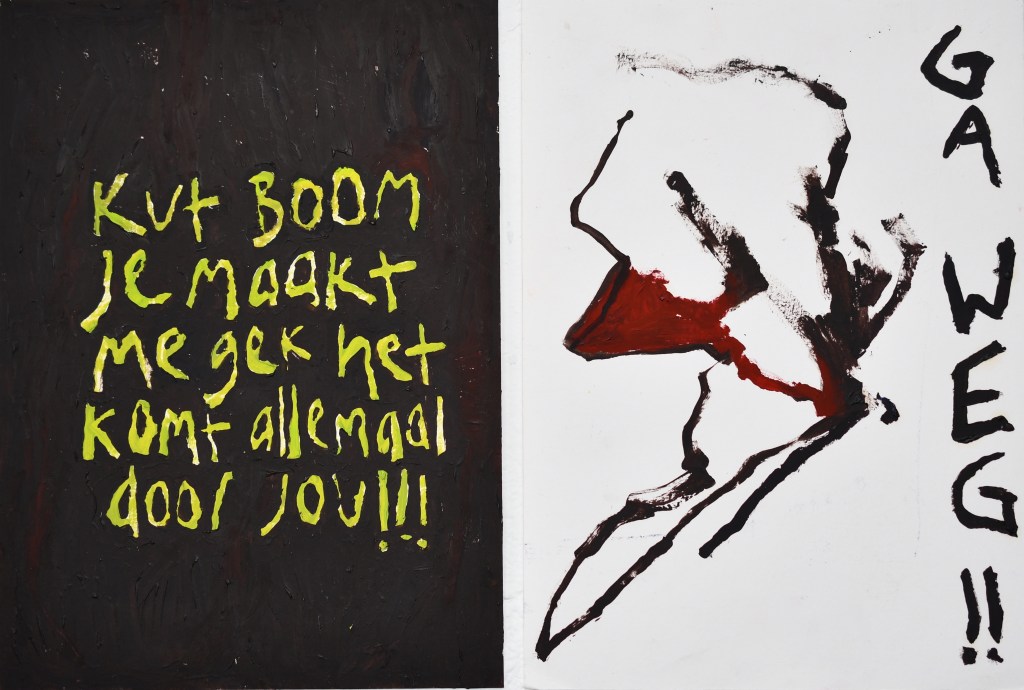 Kut BOOM
je maakt
me gek het
komt allemaal
door jou!!!
GA WEG!!